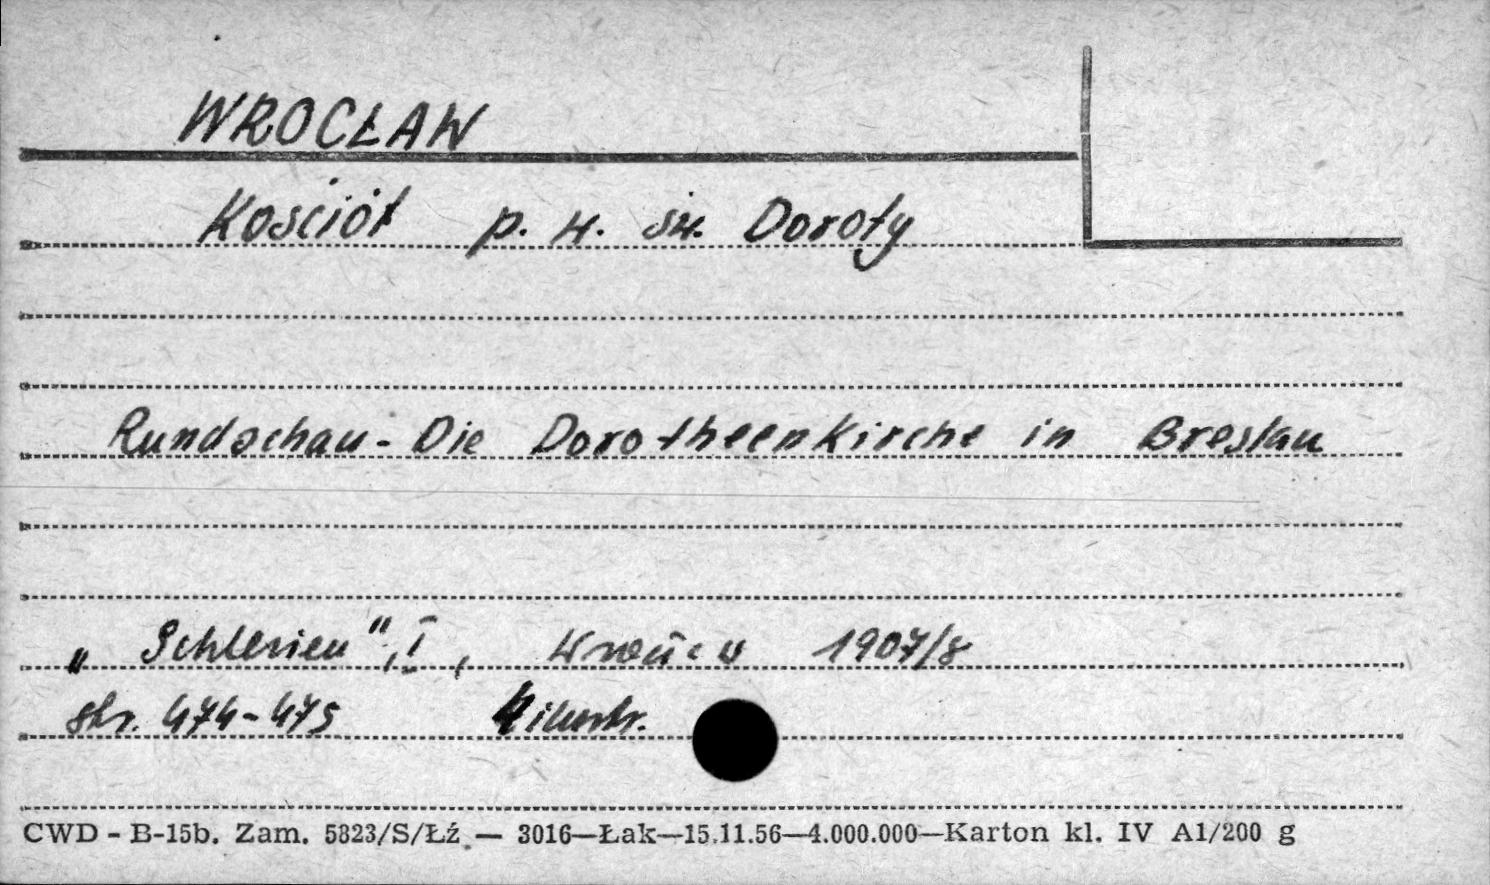 WROCŁAW
Kościół p. w. św. Doroty
Rundschau - Die Dorotheenkirche in Breslau
„Schlesien", I, 1907/8
str. 474-475 4 ilustr.
CWD - B-15b. Zam. 5823/S/Łź — 3016—Łak—15.11.56—4.000.000—Karton kl. IV A1/200 g